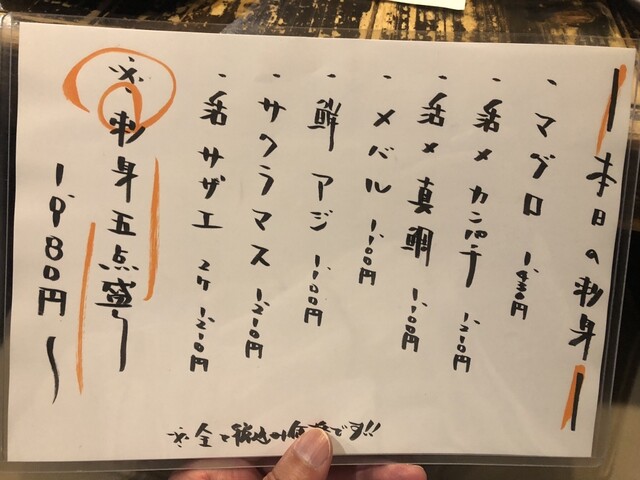 本日の刺身
・マグロ 1,430円
・活〆カンパチ 1,210円
・活〆真鯛 1,100円
・メバル 1,100円
・鮮アジ 1,100円
・サクラマス 1,210円
・活サザエ 2ケ 1,210円
※刺身五点盛り
1,980円〜
※全て税込の価格です!!